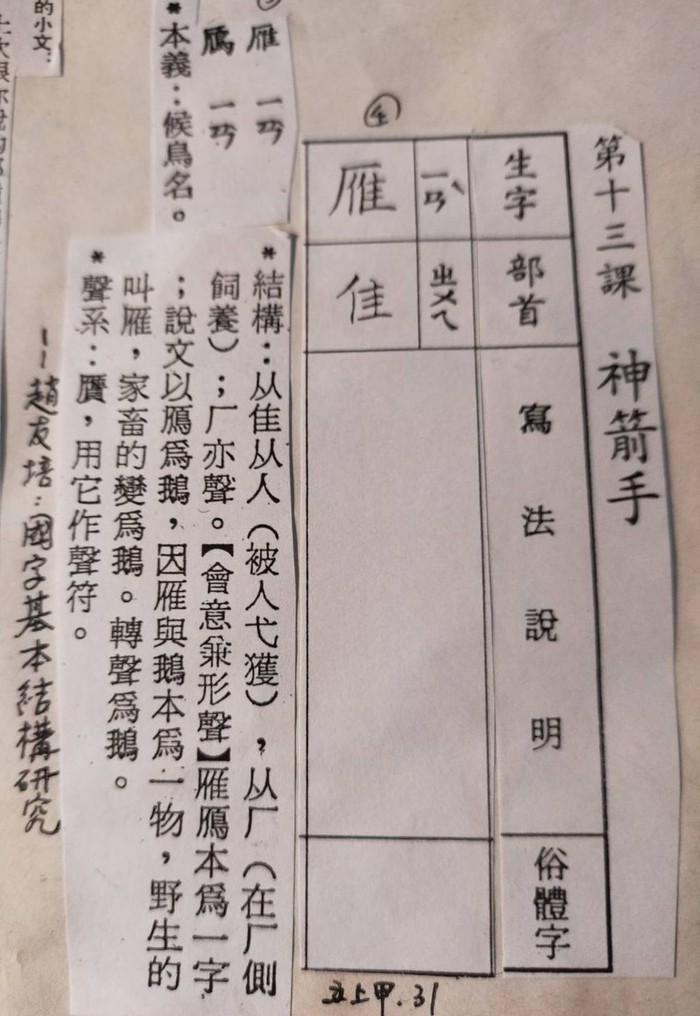 第十三課 神箭手
④
生字 部首 寫法說明 俗體字
ㄧㄢˋ ㄓㄨㄟ
雁 隹
五上甲.31
雁 ㄧㄢ
鴈 ㄧㄢ
*本義：候鳥名。
*結構：从隹从人（被人弋獲），从厂（在厂側
飼養）；厂亦聲。【會意兼形聲】雁鴈本爲一字
；說文以鴈爲鵝，因雁與鵝本爲一物，野生的
叫雁，家畜的變爲鵝。轉聲爲鵝。
*聲系：贗，用它作聲符。
——趙友培：國字基本結構研究
的小文：